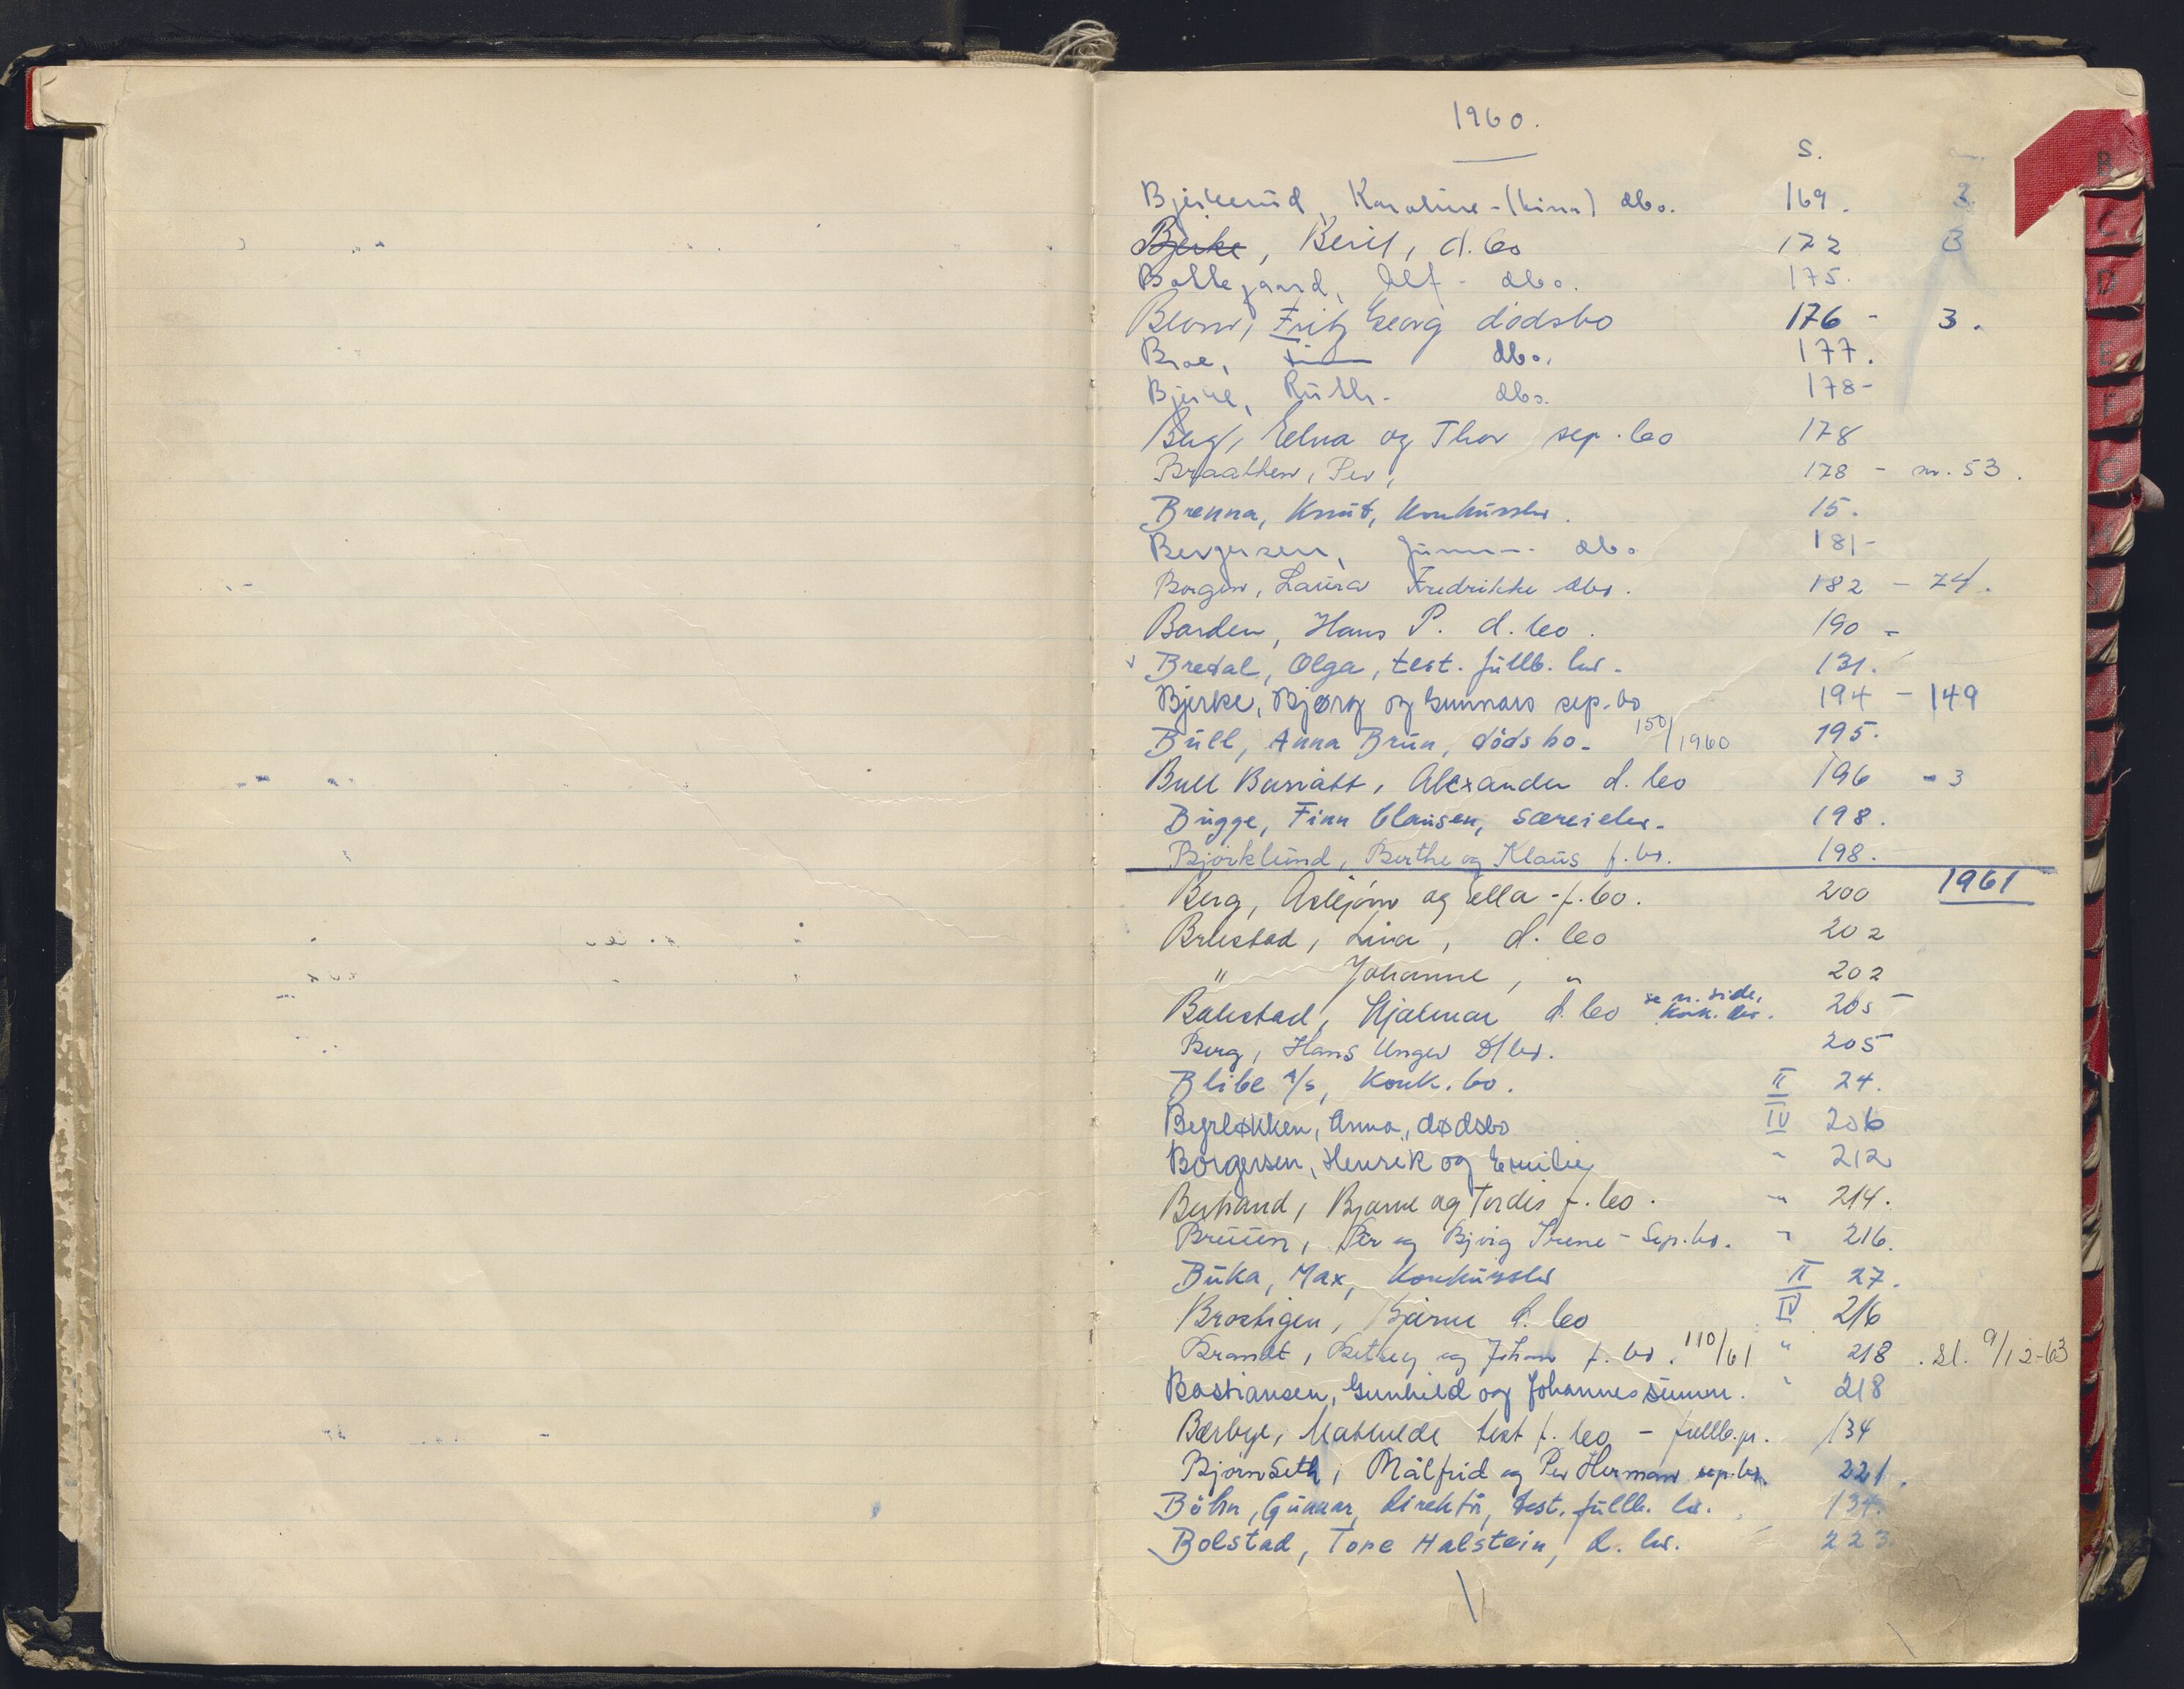 1960.
S.
Bjerkerud, Karoline - (Lina) dbo. 169. 3.
Bjerke, Berit, d. bo 172 3
Bakkegaard, Alf - dbo. 175.
Blom, Fritz Georg dødsbo 176 - 3.
Broe, dbo. 177.
Bjerke, Ruth - dbo. 178 -
Berg, Edna og Thor sep. bo 178
Braathen, Per, 178 - nr. 53.
Brenna, Knut, konkursbo. 15.
Bergersen, Gunnar - dbo 181 -
Borgen, Laura Fredrikke dbo. 182 - 74.
Barden, Hans P. d. bo. 190 -
Bredal, Olga, test. fullb. bo. 131.
Bjerke, Bjørg og Gunnars sep. bo 194 - 149
Bull, Anna Brun, dødsbo - 150/1960 195.
Bull Barratt, Alexander d. bo 196 - 3
Bugge, Finn Clausen, særeiebo. 198.
Bjørklund, Berthe og Klaus f. bo. 198.
1961
Berg, Asbjørn og Ella - f. bo. 200
Brustad, Lina, d. bo 202
" Johanne, " 202
Bakstad, Hjalmar d. bo se n. side, konk. bo. 205 -
Berg, Hans Unger d/bo. 205
Blibe A/S, Konk. bo. II 24.
Begrløkken, Anna, dødsbo IV 206
Borgersen, Henrik og Emilie " 212
Bertrand, Bjarne og Tordis f. bo. " 214.
Bruun, Per og Bjørg Irene - Sep. bo. " 216.
Buka, Max, konkursbo II 27.
Brostigen, Bjarne d. bo IV 216
Brandt, Betsey og Johan f. bo. 110/61 " 218. Sl. 9/12-63
Bastiansen, Gunhild og Johannes summ. " 218
Bærbye, Mathilde test f. bo - fullb.pr. 134
Bjørnseth, Målfrid og Per Herman sep. bo. 221.
Böhn, Gunnar, direktør, test. fullb. bo. 134.
Bolstad, Tore Halstein, d. bo. 223.
B
C
D
E
F
G